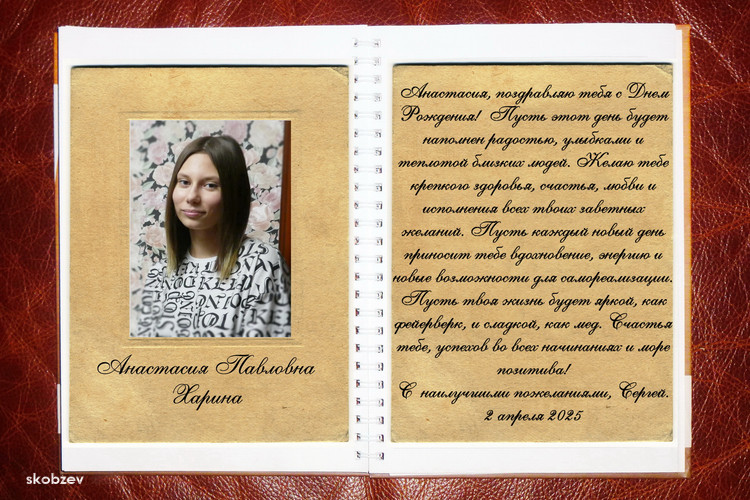 Анастасия Павловна
Харина
Анастасия, поздравляю тебя с Днем
Рождения! Пусть этот день будет
наполнен радостью, улыбками и
теплотой близких людей. Желаю тебе
крепкого здоровья, счастья, любви и
исполнения всех твоих заветных
желаний. Пусть каждый новый день
приносит тебе вдохновение, энергию и
новые возможности для самореализации.
Пусть твоя жизнь будет яркой, как
фейерверк, и сладкой, как мед. Счастья
тебе, успехов во всех начинаниях и море
позитива!
С наилучшими пожеланиями, Сергей.
2 апреля 2025
skobzev